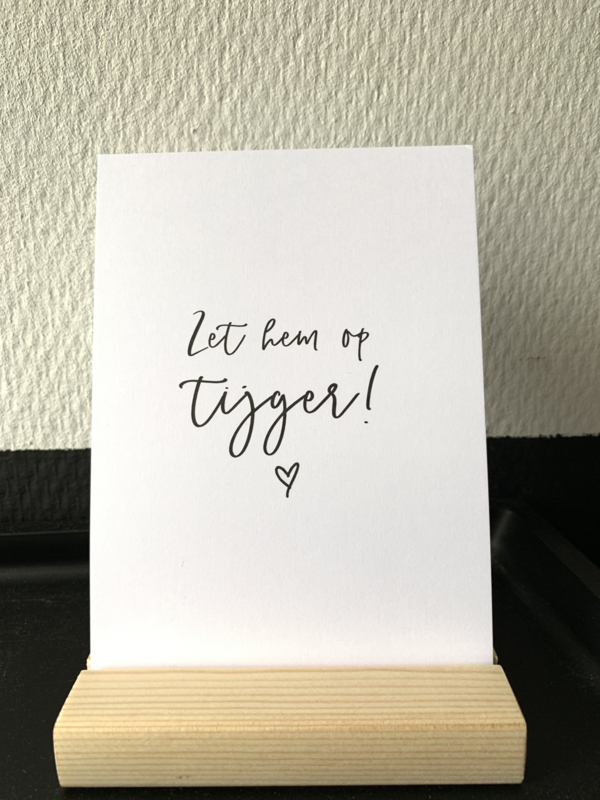 Zet hem op
tijger!